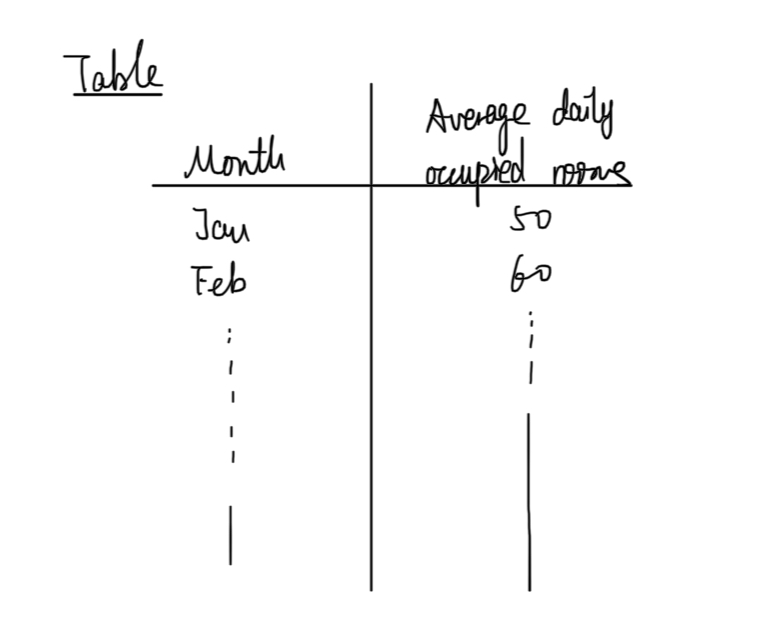 Table
Month
Average daily
occupied rooms
Jan
50
Feb
60